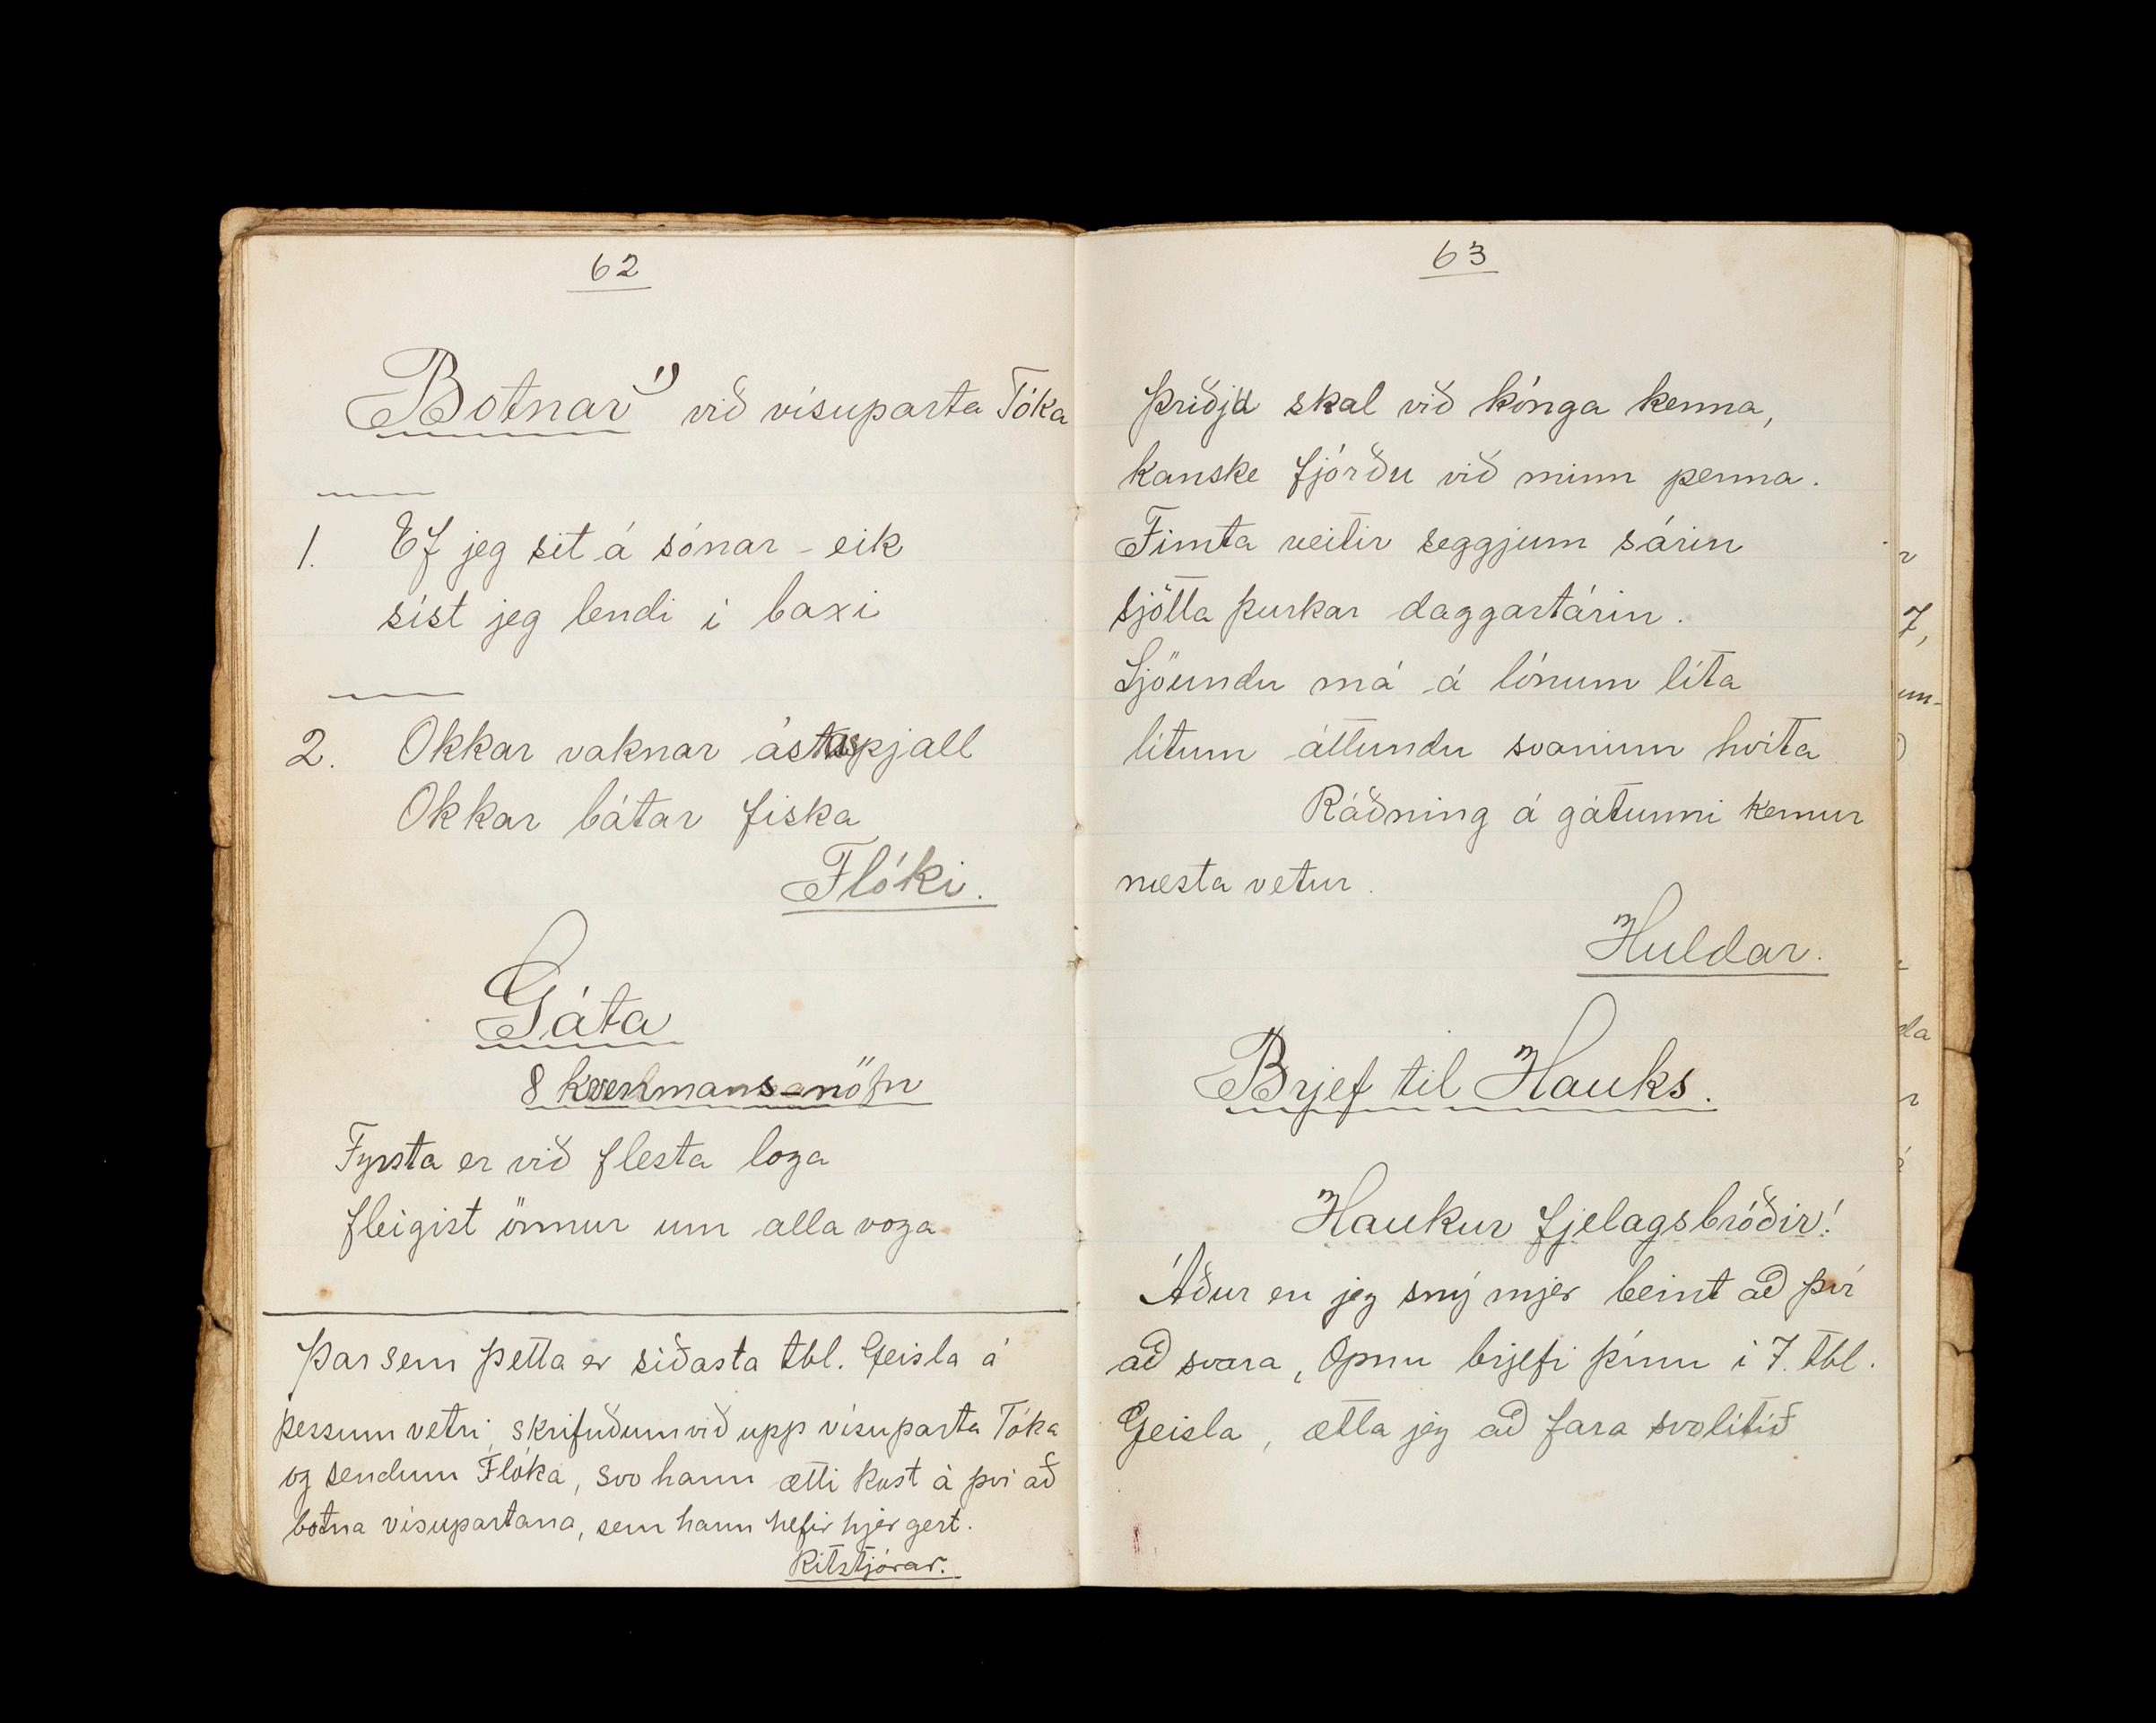 62
Botnar 1) við vísuparta Tóka
1. Ef jeg sit á sónar-eik
síst jeg lendi í baxi
2. Okkar vaknar ástaspjall
Okkar bátar fiska
Flóki.
Gáta
8 kvenmansnöfn
Fyrsta er við flesta loga
fleigist önnur um alla voga
Þar sem þetta er síðasta tbl. Geisla á
þessum vetri, skrifuðum við upp vísuparta Tóka
og sendum Flóka, svo hann ætti kost á því að
botna vísupartana, sem hann hefir hjer gert.
Ritstjórar.
63
Þriðju skal við kónga kenna,
kanske fjórðu við minn penna.
Fimta veitir seggjum sárin
sjötta þurkar daggartárin.
Sjöundu má á lónum líta
lítum áttundu svaninn hvíta
Ráðning á gátunni kemur
næsta vetur.
Huldar.
Brjef til Hauks.
Haukur fjelagsbróðir!
Áður en jeg sný mjer beint að því
að svara, Opnu brjefi þínu í 7. tbl.
Geisla, ætla jeg að fara svolítið